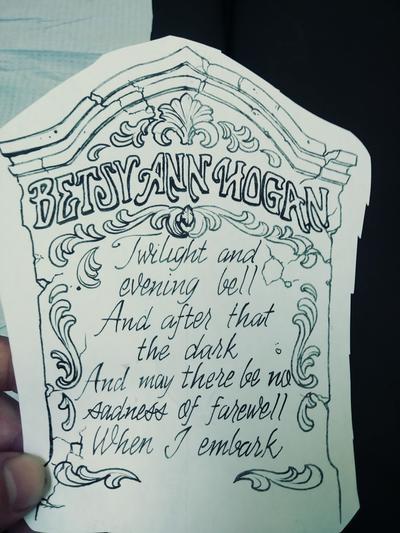 BETSY ANN HOGAN
Twilight and
evening bell
And after that
the dark
And may there be no
sadness of farewell
When I embark